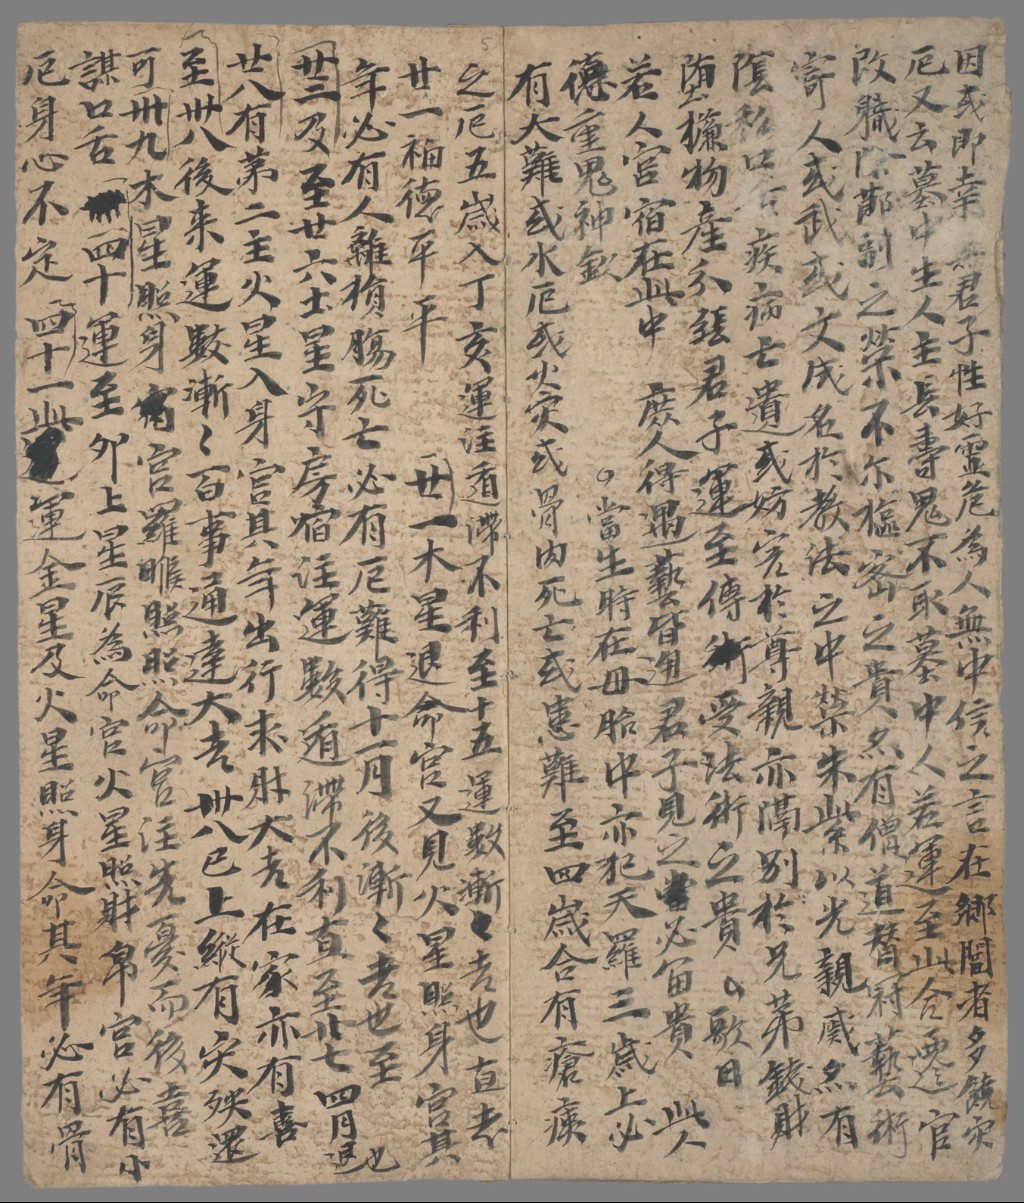 因或即幸 無君子性好靈危為人無中信之言在鄉閭者多饒灾
厄又云墓中生人主長壽鬼不取墓中人若運至此合遷官
改職除鄙副之榮不尔樞密之貴亦有僧道醫卜藝術
寄人或武或文成名於教法之中榮朱紫以光親戚亦有
陰私口舌疾病亡遺或妨害於尊親亦隔別於兄弟錢財
墮攘物產分張君子運至傳術受法術之貴 歌曰
若人宮宿在此中 庶人得遇藝皆通 君子見之必富貴 此人
德重鬼神欽 當生時在母胎中亦犯天羅三歲上必
有大難或水厄或火灾或骨肉死亡或患難至四歲合有瘡痍
之厄五歲入丁亥運注迍滯不利至十五運数漸〻吉也直去
廿一福德平平 廿一木星退命宮又見火星照身宮其
年必有人離損傷死亡必有厄難得十一月後漸〻吉也至
廿三及至廿六土星守房宿注運數迍滯不利直至廿七四月退也
廿八有苐二主火星入身宮其年出行求財大吉在家亦有喜
至卅八後来運數漸〻百事通達大吉卅八已上縱有灾殃還
可卅九木星照身宮羅睺照照命宮注先憂而後喜
謀口舌 四十運至夘上星辰為命宮火星照財帛宮必有小
厄身心不定 四十一此運金星及火星照身命其年必有骨